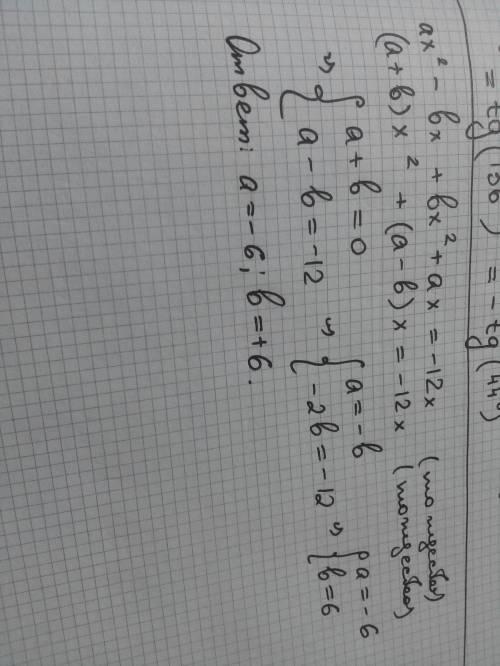 = tg(136°) = -tg(44°)
ax² - bx + bx² + ax = -12x (тождество)
(a+b)x² + (a-b)x = -12x (тождество)
⇒ { a+b=0 ⇒ { a=-b ⇒ { a=-6
a-b=-12 -2b=-12 b=6
Ответ: a=-6; b=+6.